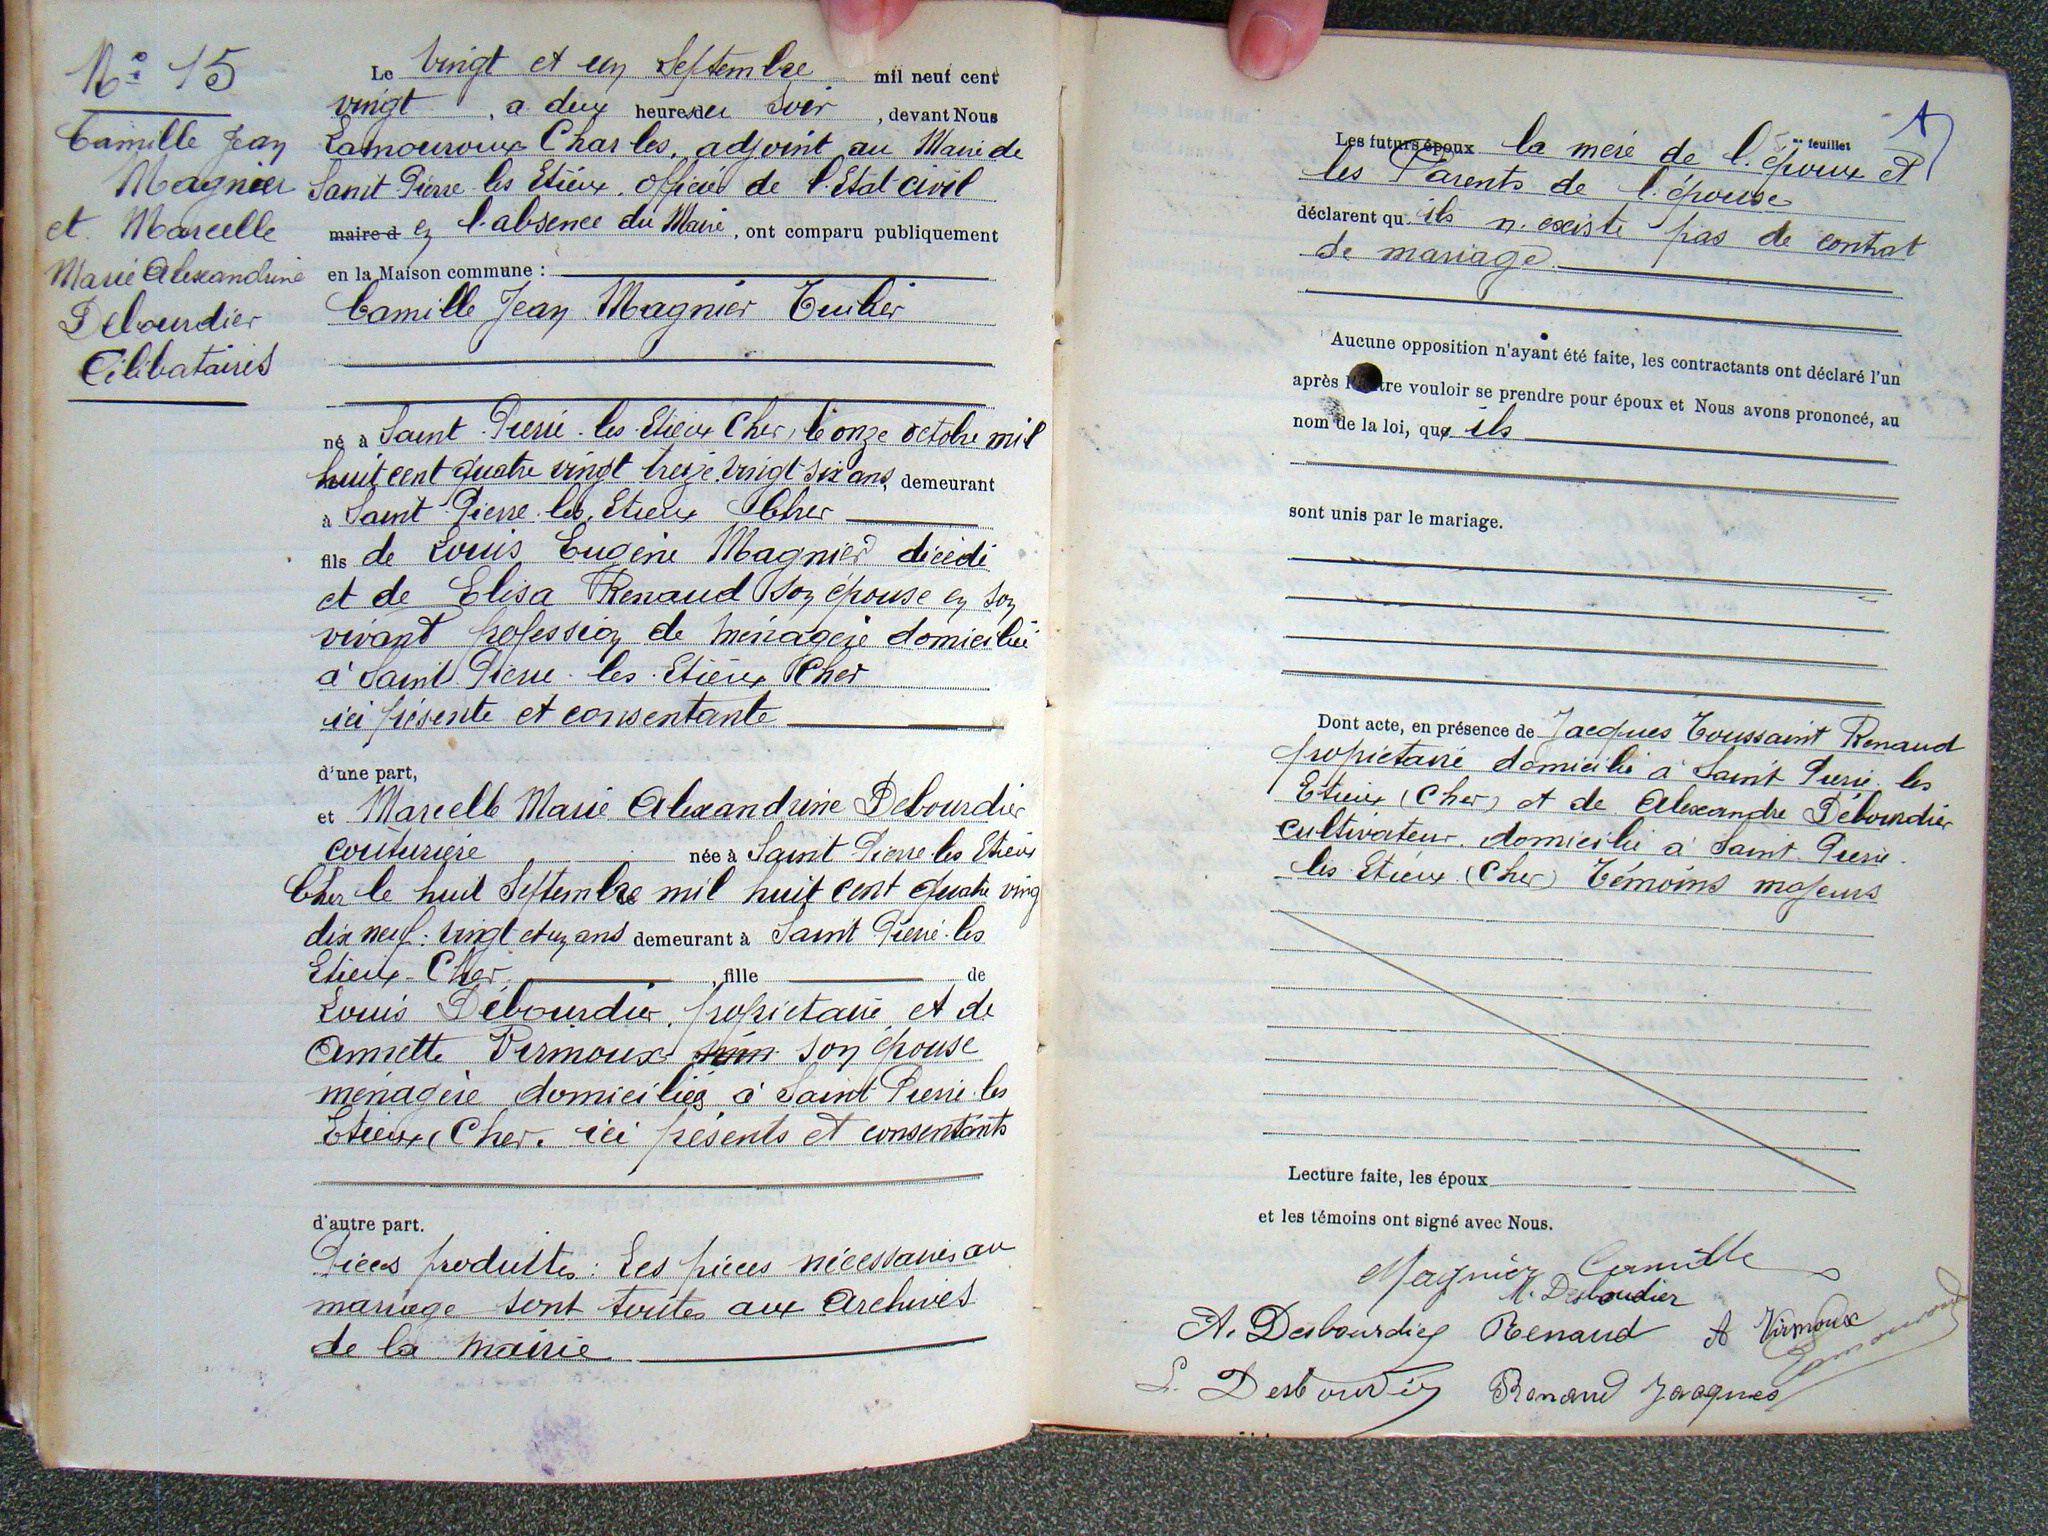 N° 15
Camille Jean
Magnier
et Marcelle
Marie Alexandrine
Debourdier
Célibataires
Le vingt et un Septembre mil neuf cent
vingt, a deux heures du Soir, devant Nous
Lamouroux Charles, adjoint au Maire de
Saint Pierre les Etieux, officier de l'Etat civil
maire d en l'absence du Maire, ont comparu publiquement
en la Maison commune :
Camille Jean Magnier Tuilier
né à Saint Pierre les Etieux Cher, le onze octobre mil
huit cent quatre vingt treize, vingt six ans, demeurant
à Saint Pierre les Etieux Cher
fils de Louis Eugène Magnier décédé
et de Elisa Renaud son épouse en son
vivant profession de ménagère domiciliée
à Saint Pierre les Etieux Cher
ici présente et consentante
d'une part,
et Marcelle Marie Alexandrine Debourdier
couturière née à Saint Pierre les Etieux
Cher le huit Septembre mil huit cent quatre ving
dix neuf. vingt et un ans demeurant à Saint Pierre les
Etieux Cher, fille de
Louis Débourdier, propriétaire et de
Annette Virmoux son épouse
ménagère domiciliés à Saint Pierre les
Etieux (Cher. ici présents et consentants
d'autre part.
Pièces produites : Les pièces nécessaires au
mariage sont toutes aux Archives
de la mairie
feuillet
Les futurs époux la mère de l'époux et
les Parents de l'épouse
déclarent qu'ils n'existe pas de contrat
de mariage.
Aucune opposition n'ayant été faite, les contractants ont déclaré l'un
après l'autre vouloir se prendre pour époux et Nous avons prononcé, au
nom de la loi, que ils
sont unis par le mariage.
Dont acte, en présence de Jacques Toussaint Renaud
propriétaire domicilié à Saint Pierre les
Etieux (Cher) et de Alexandre Débourdier
cultivateur domicilié à Saint Pierre
les Etieux (Cher) Témoins majeurs
Lecture faite, les époux
et les témoins ont signé avec Nous.
Magnier Camille
M. Desboudier
A. Desbourdier Renaud A Virmoux
Lamouroux
L. Desbourdier Renaud Jacques